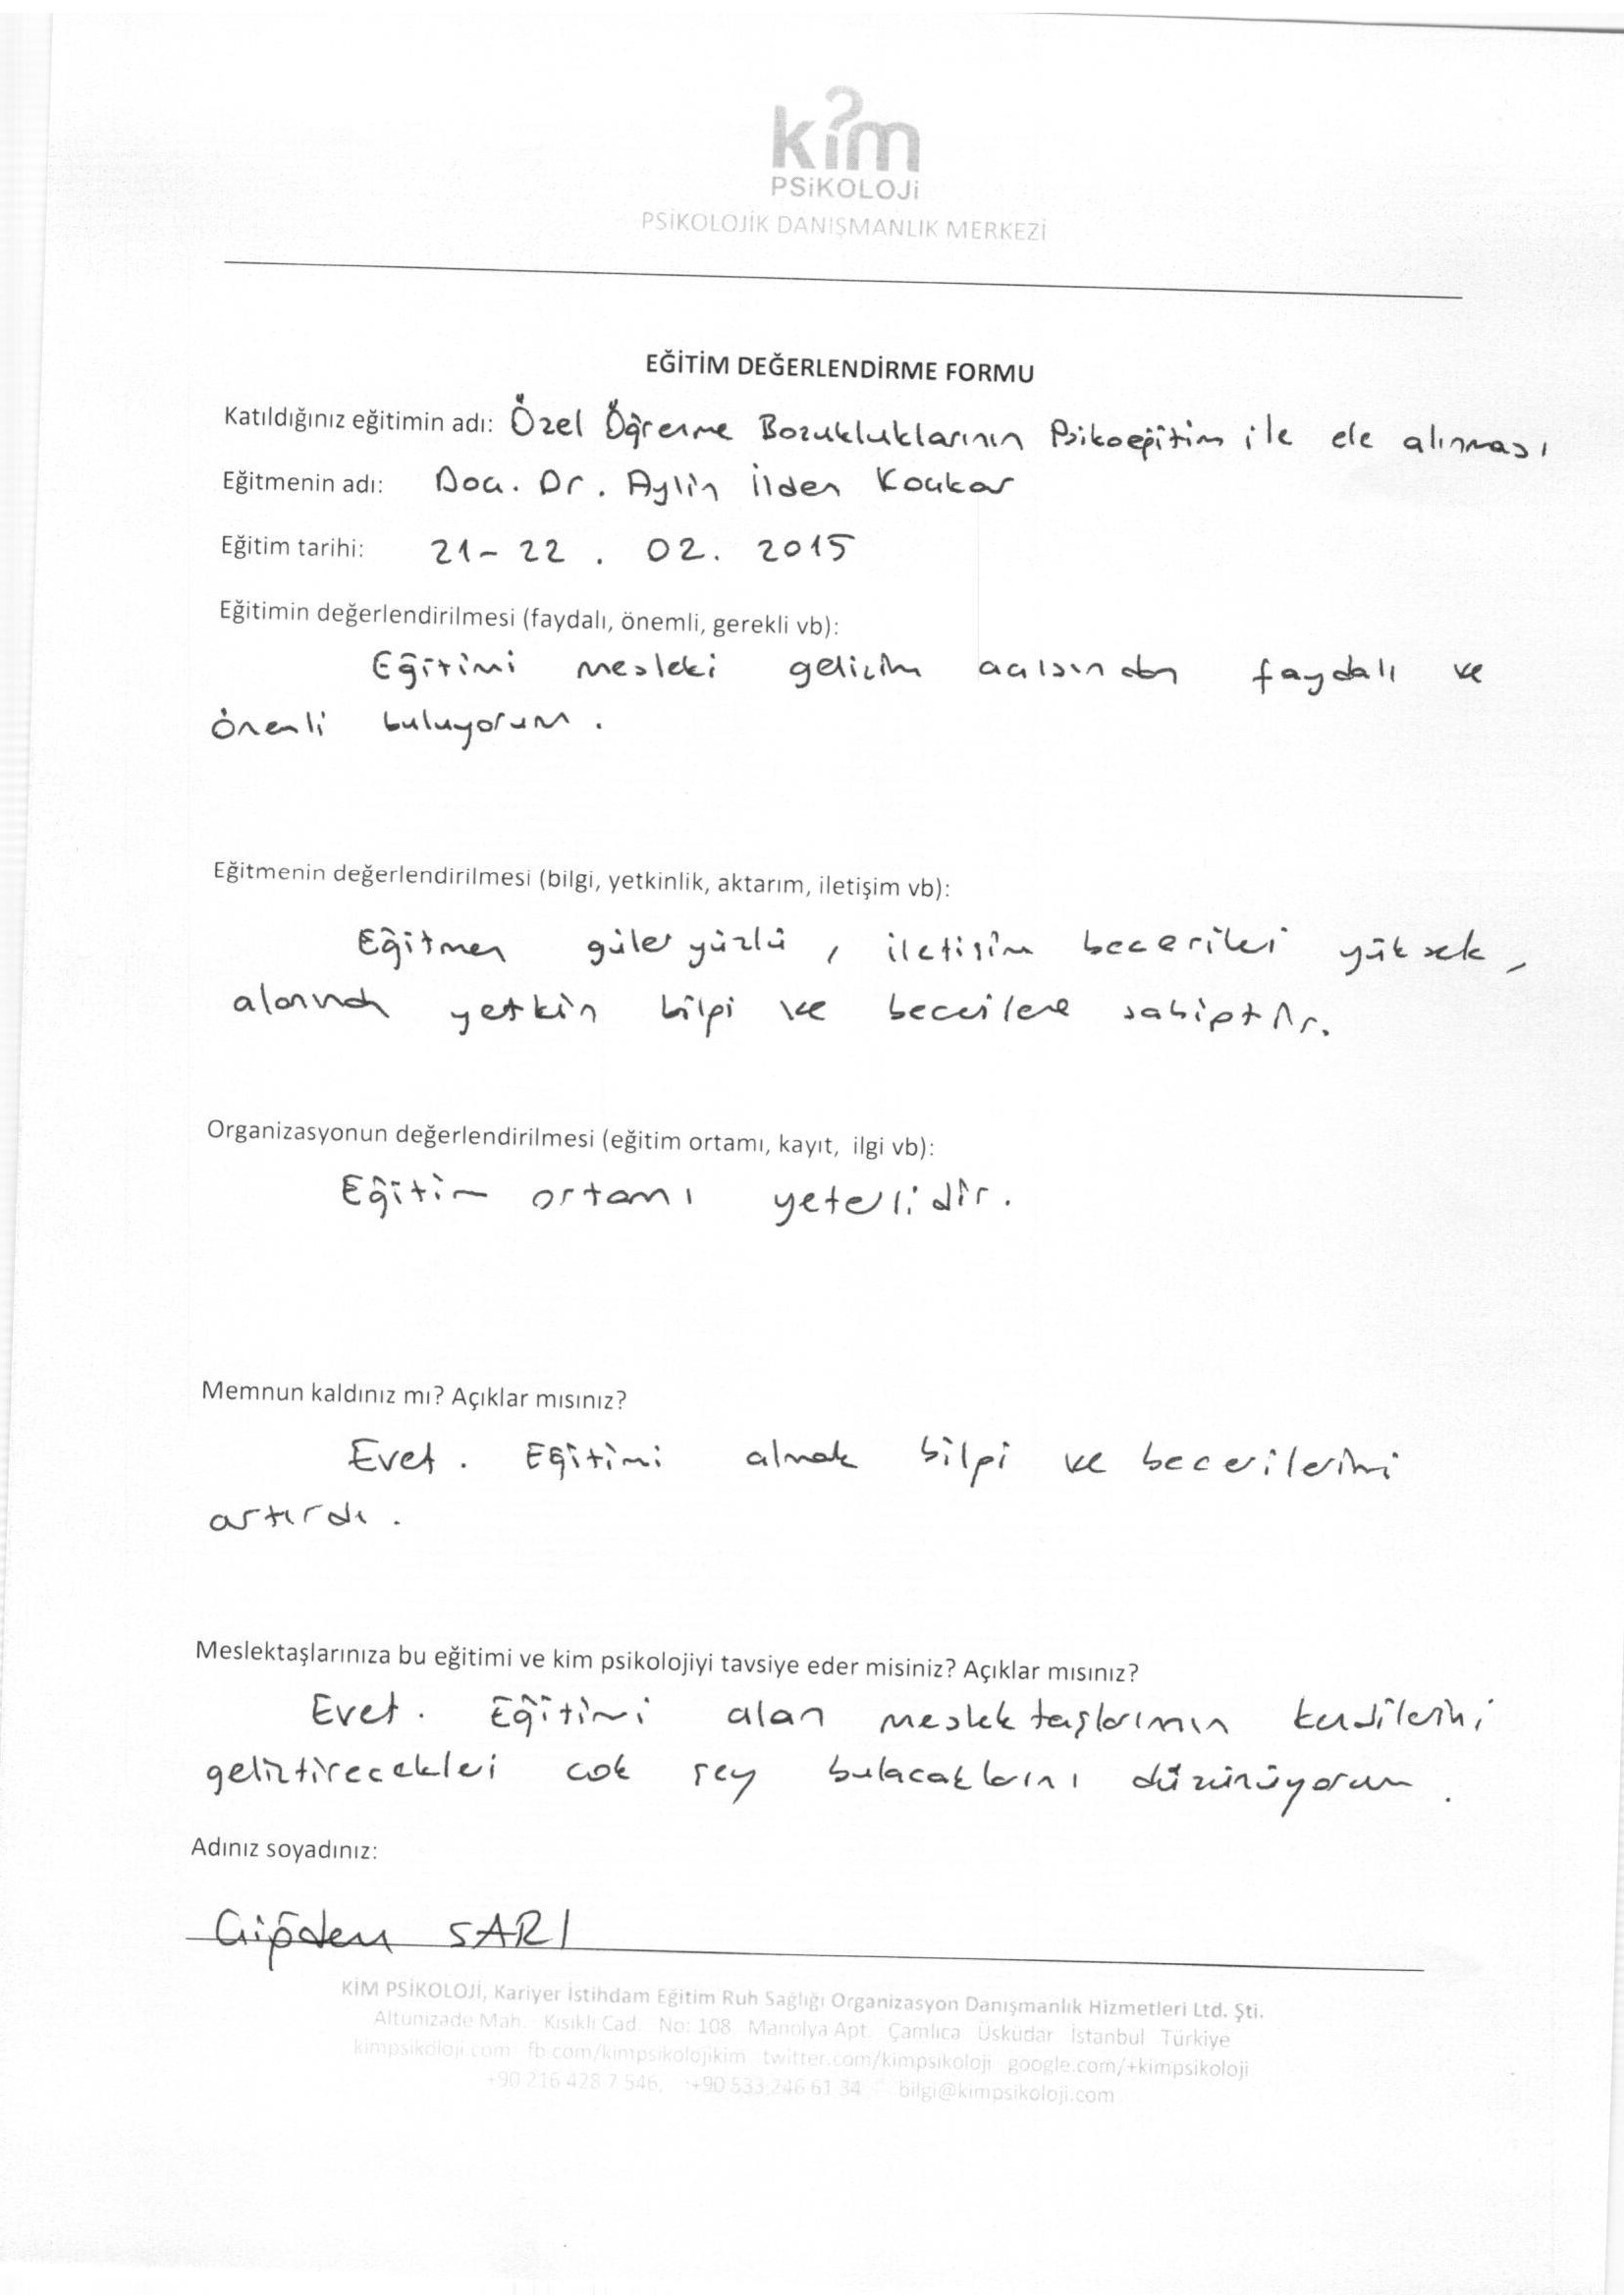 kim
PSiKOLOJi
PSİKOLOJİK DANIŞMANLIK MERKEZİ
EĞİTİM DEĞERLENDİRME FORMU
Katıldığınız eğitimin adı: Özel Öğrenme Bozukluklarının Psikoeğitim ile ele alınması
Eğitmenin adı: Doç. Dr. Aylin İlden Koçkar
Eğitim tarihi: 21-22 . 02. 2015
Eğitimin değerlendirilmesi (faydalı, önemli, gerekli vb):
Eğitimi mesleki gelişim açısından faydalı ve
önemli buluyorum .
Eğitmenin değerlendirilmesi (bilgi, yetkinlik, aktarım, iletişim vb):
Eğitmen güler yüzlü , iletişim becerileri yüksek ,
alanında yetkin bilgi ve becerilere sahiptir.
Organizasyonun değerlendirilmesi (eğitim ortamı, kayıt, ilgi vb):
Eğitim ortamı yeterlidir.
Memnun kaldınız mı? Açıklar mısınız?
Evet . Eğitimi almak bilgi ve becerilerimi
artırdı .
Meslektaşlarınıza bu eğitimi ve kim psikolojiyi tavsiye eder misiniz? Açıklar mısınız?
Evet . Eğitimi alan meslektaşlarımın kendilerini
geliştirecekleri çok şey bulacaklarını düşünüyorum .
Adınız soyadınız:
Çiğdem SARI
KİM PSİKOLOJİ, Kariyer İstihdam Eğitim Ruh Sağlığı Organizasyon Danışmanlık Hizmetleri Ltd. Şti.
Altunizade Mah. Kısıklı Cad. No: 108 Manolya Apt. Çamlıca Üsküdar İstanbul Türkiye
kimpsikoloji.com fb.com/kimpsikolojikim twitter.com/kimpsikoloji google.com/+kimpsikoloji
+90 216 428 7 546, +90 533 246 61 34 bilgi@kimpsikoloji.com